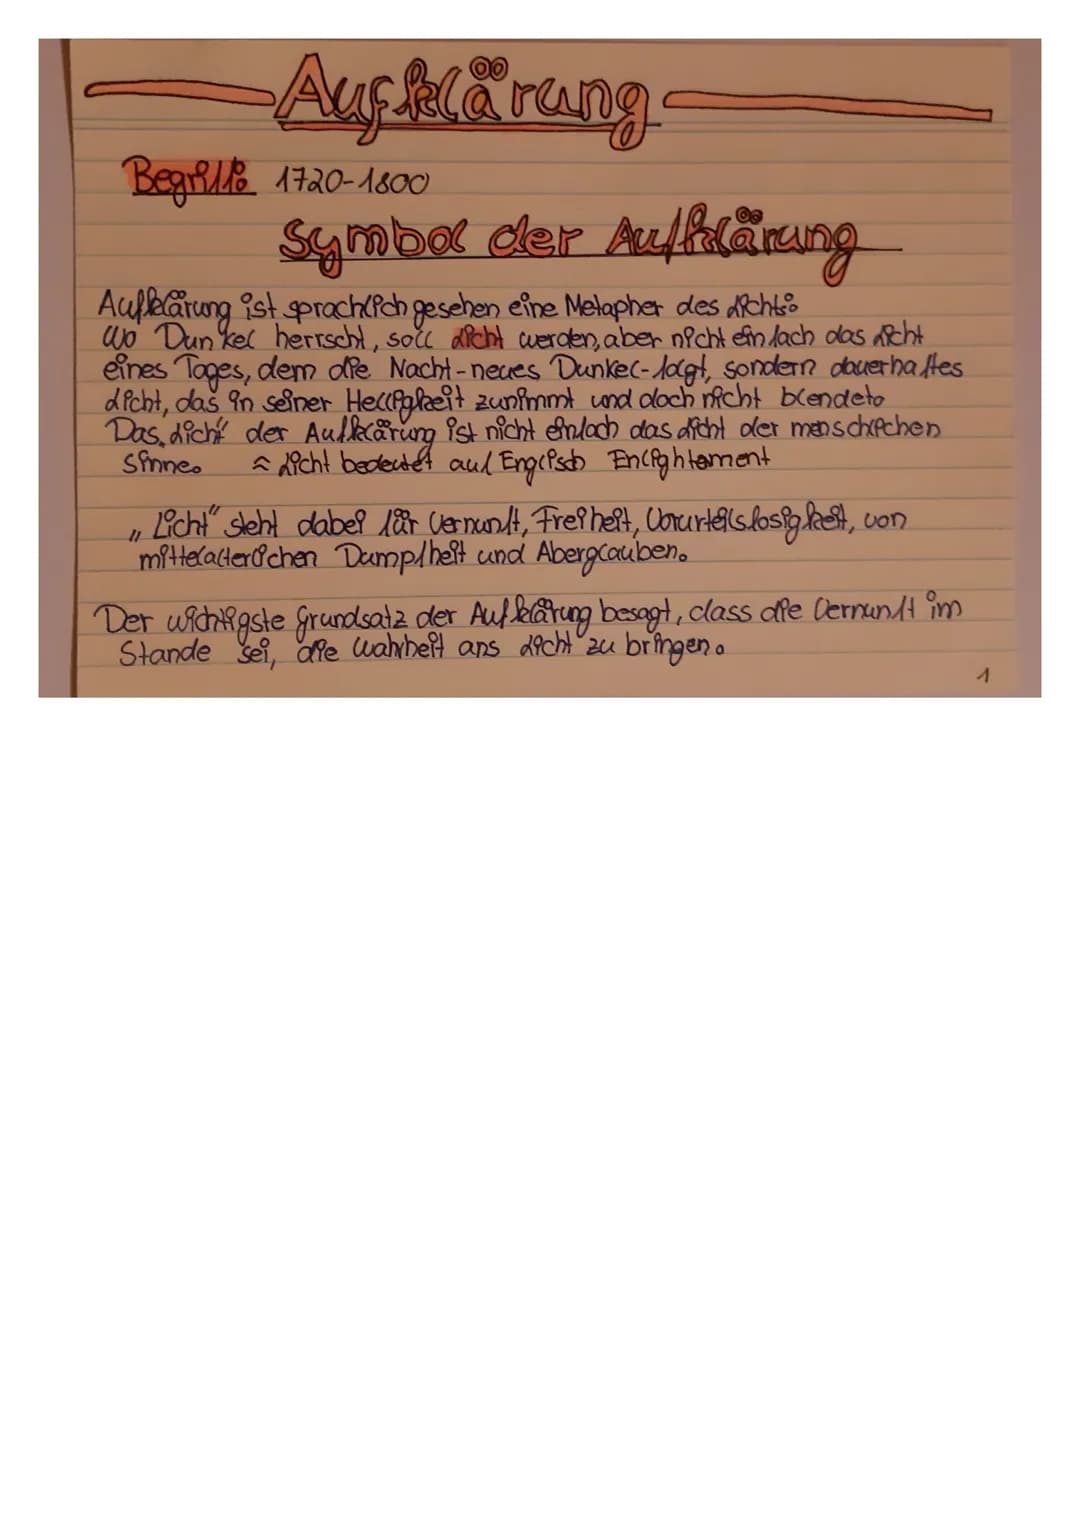 Aufklärung
Begriff: 1720-1800
Symbol der Aufklärung
Aufklärung ist sprachlich gesehen eine Metapher des Lichts:
Wo Dunkel herrscht, soll Licht werden, aber nicht einfach das Licht
eines Tages, dem die Nacht-neues Dunkel-folgt, sondern dauerhaftes
Licht, das in seiner Helligkeit zunimmt und doch nicht blendet.
Das „Licht“ der Aufklärung ist nicht einfach das Licht der menschlichen
Sinne. ≙ Licht bedeutet auf Englisch Enlightement
„Licht“ steht dabei für Vernunft, Freiheit, Vorurteilslosigkeit, von
mittelalterlichen Dumpfheit und Aberglauben.
Der wichtigste Grundsatz der Aufklärung besagt, dass die Vernunft im
Stande sei, die Wahrheit ans Licht zu bringen.
1